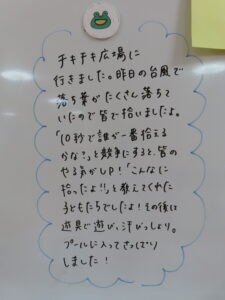 チキチキ広場に
行きました。昨日の台風で
落ち葉がたくさん落ちて
いたので皆で拾いましたよ。
「10秒で誰が一番拾える
かな?」と競争にすると、皆の
やる気がUP!「こんなに
拾ったよ!!」と教えてくれた
子どもたちでしたよ!その後は
遊具で遊び、汗びっしょり。
プールに入ってさっぱり
しました!